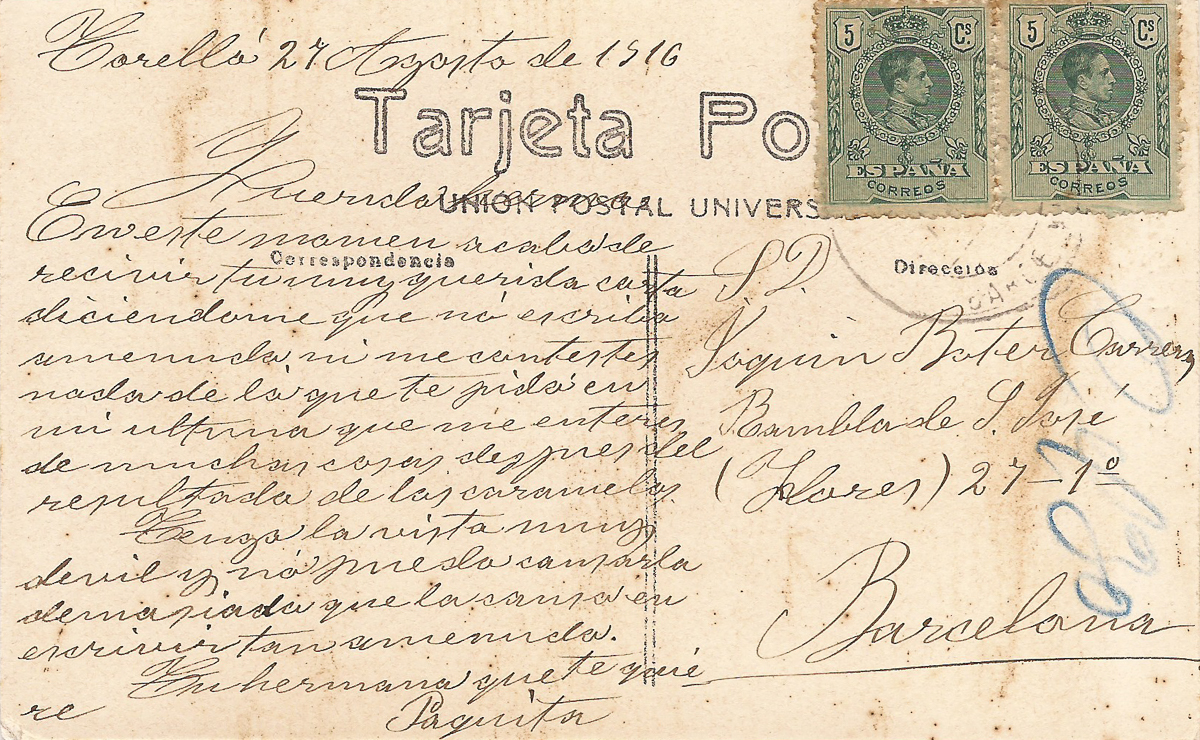 Torelló 27 Agosto de 1916
Tarjeta Po
UNIÓN POSTAL UNIVERS
Correspondencia
Dirección
5 Cs.
ESPAÑA
CORREOS
5 Cs.
ESPAÑA
CORREOS
Querida
En este momen acaba de
recivir tu muy querida carta
diciendome que nó escriba
amenuda ni me contestes
nada de la que te pido en
mi ultima que me enteres
de muchas cosas despues del
resultada de las caramelos
Tenga la vista muy
devil y nó puedo cansarla
demasiada que la cansa en
escrivir tan amenuda.
Tu hermana que te quie
re
Paquita
S. D.
Joaquin Boter Carrera
Rambla de S. José
(Flores) 27-1º
Barcelona